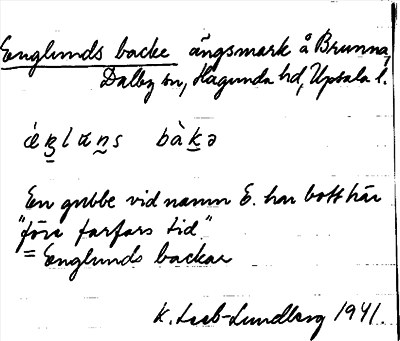 Englunds backe ängsmark å Brunna,
Dalby sn, Hagunda hd, Upsala l.
bàk̲ə
En gubbe vid namn E. har bott här
"före farfars tid"
= Englunds backar
K. Leeb-Lundberg 1941.